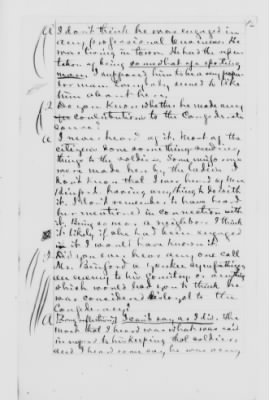 A I don't think he was engaged in
any professional business. He
was living in town. He had the repu-
tation of being somewhat of a sporting
man. I supposed him to be a very
man. Everybody seemed to like
him about here.
Q Do you know whether he made any
contributions to the Confederate
cause?
A I never heard of it. Most of the
citizens done something sending
things to the soldiers. Some uniforms
were made here by the ladies. I
don't know that I ever heard of Mrs
Binford having anything to do with
it. I don't remember to have heard
her mentioned in connection with
it. Being so near a neighbor I think
it likely if she had been engaged
in it I would have known it.
Q Did you ever hear any one call
Mr. Binford a Yankee sympathizer
an enemy to his country or anything
which would lead you to think he
was considered disloyal to the
Confederacy?
A (Being reflecting) I can't say as I did. The
most that I heard was what was said
in regard to his keeping that soldier,
and I heard some say he was very